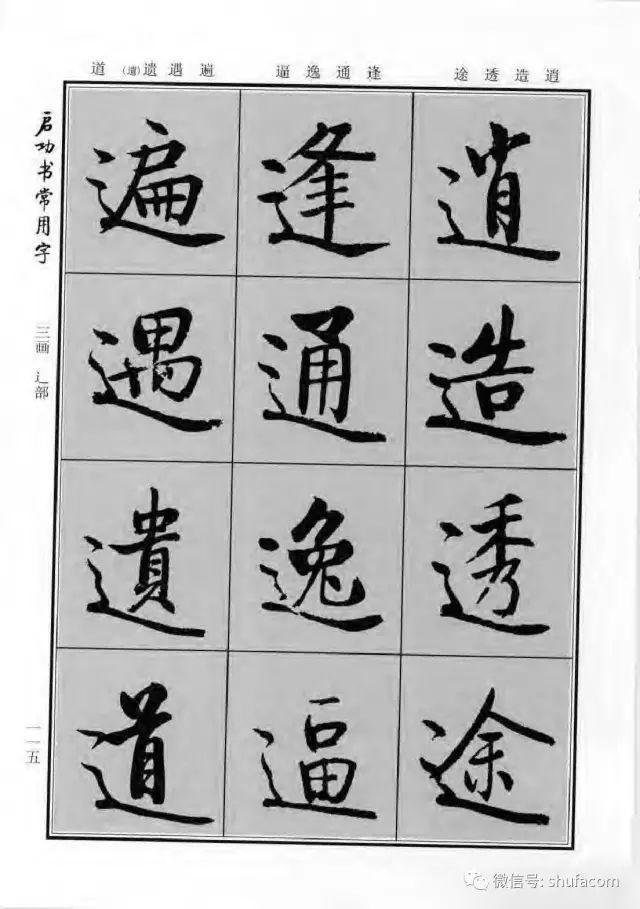 道 (遗)遗遇遍 逼逸通逢 途透造逍
启功书常用字
三画 辶部
一一五
逍 逢 遍
造 通 遇
透 逸 遺
途 逼 道
微信号: shufacom